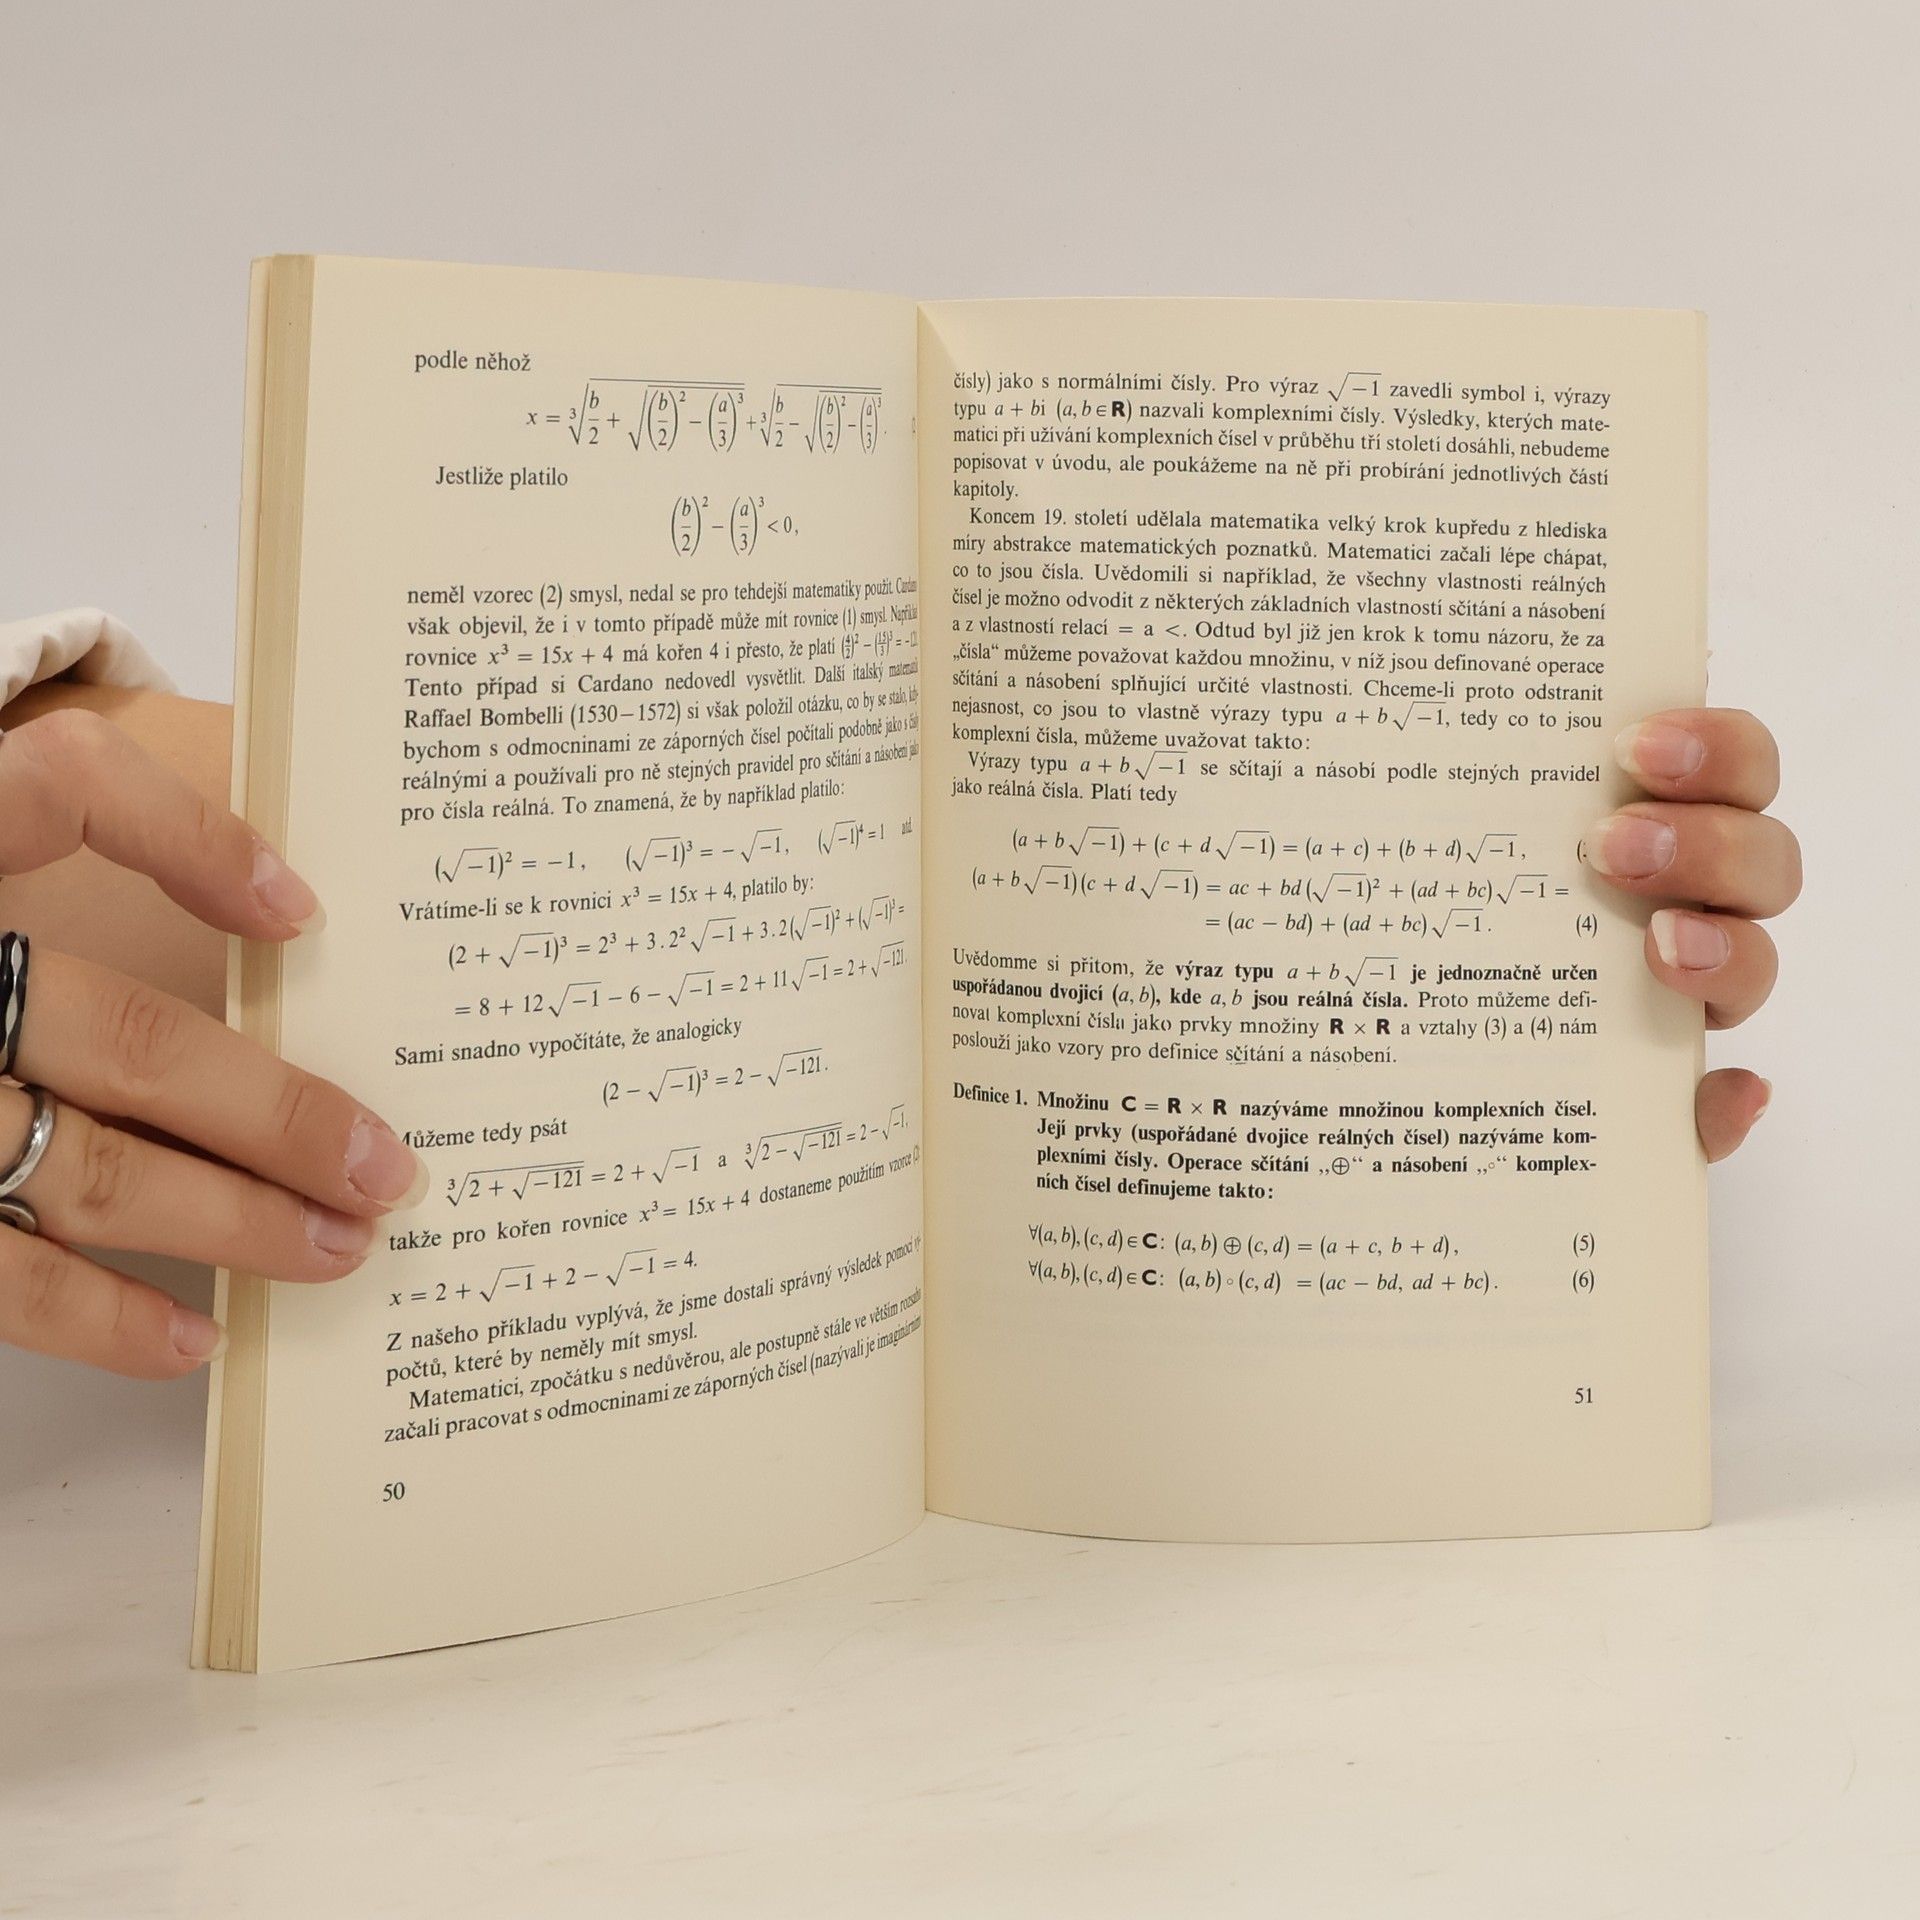 podle něhož
x = ∛(b/2 + √((b/2)² − (a/3)³)) + ∛(b/2 − √((b/2)² − (a/3)³)).
Jestliže platilo
(b/2)² − (a/3)³ < 0,
neměl vzorec (2) smysl, nedal se pro tehdejší matematiky použít.
však objevil, že i v tomto případě může mít rovnice (1) smysl.
rovnice x³ = 15x + 4 má kořen 4 i přesto, že platí (4/2)² − (15/3)³ =
Tento případ si Cardano nedovedl vysvětlit. Další italský
Raffael Bombelli (1530–1572) si však položil otázku, co by se stalo,
bychom s odmocninami ze záporných čísel počítali podobně jako s
reálnými a používali pro ně stejných pravidel pro sčítání a násobení jako
pro čísla reálná. To znamená, že by například platilo:
(√−1)² = −1, (√−1)³ = −√−1, (√−1)⁴ = 1 atd.
Vrátíme-li se k rovnici x³ = 15x + 4, platilo by:
(2 + √−1)³ = 2³ + 3.2²√−1 + 3.2(√−1)² + (√−1)³ =
= 8 + 12√−1 − 6 − √−1 = 2 + 11√−1 = 2 + √−121.
Sami snadno vypočítáte, že analogicky
(2 − √−1)³ = 2 − √−121.
Můžeme tedy psát
∛(2 + √−121) = 2 + √−1 a ∛(2 − √−121) = 2 − √−1,
takže pro kořen rovnice x³ = 15x + 4 dostaneme použitím vzorce (2)
x = 2 + √−1 + 2 − √−1 = 4.
Z našeho příkladu vyplývá, že jsme dostali správný výsledek pomocí vý-
počtů, které by neměly mít smysl.
Matematici, zpočátku s nedůvěrou, ale postupně stále ve větším rozsahu
začali pracovat s odmocninami ze záporných čísel (nazývali je imaginárními
50
čísly) jako s normálními čísly. Pro výraz √−1 zavedli symbol i, výrazy
typu a + bi (a, b ∈ R) nazvali komplexními čísly. Výsledky, kterých mate-
matici při užívání komplexních čísel v průběhu tří století dosáhli, nebudeme
popisovat v úvodu, ale poukážeme na ně při probírání jednotlivých částí
kapitoly.
Koncem 19. století udělala matematika velký krok kupředu z hlediska
míry abstrakce matematických poznatků. Matematici začali lépe chápat,
co to jsou čísla. Uvědomili si například, že všechny vlastnosti reálných
čísel je možno odvodit z některých základních vlastností sčítání a násobení
a z vlastností relací = a <. Odtud byl již jen krok k tomu názoru, že za
„čísla“ můžeme považovat každou množinu, v níž jsou definované operace
sčítání a násobení splňující určité vlastnosti. Chceme-li proto odstranit
nejasnost, co jsou to vlastně výrazy typu a + b√−1, tedy co to jsou
komplexní čísla, můžeme uvažovat takto:
Výrazy typu a + b√−1 se sčítají a násobí podle stejných pravidel
jako reálná čísla. Platí tedy
(a + b√−1) + (c + d√−1) = (a + c) + (b + d)√−1,
(a + b√−1)(c + d√−1) = ac + bd(√−1)² + (ad + bc)√−1 =
= (ac − bd) + (ad + bc)√−1. (4)
Uvědomme si přitom, že výraz typu a + b√−1 je jednoznačně určen
uspořádanou dvojicí (a, b), kde a, b jsou reálná čísla. Proto můžeme defi-
novat komplexní čísla jako prvky množiny R × R a vztahy (3) a (4) nám
poslouží jako vzory pro definice sčítání a násobení.
Definice 1. Množinu C = R × R nazýváme množinou komplexních čísel.
Její prvky (uspořádané dvojice reálných čísel) nazýváme kom-
plexními čísly. Operace sčítání „⊕“ a násobení „∘“ komplex-
ních čísel definujeme takto:
∀(a, b), (c, d) ∈ C: (a, b) ⊕ (c, d) = (a + c, b + d), (5)
∀(a, b), (c, d) ∈ C: (a, b) ∘ (c, d) = (ac − bd, ad + bc). (6)
51